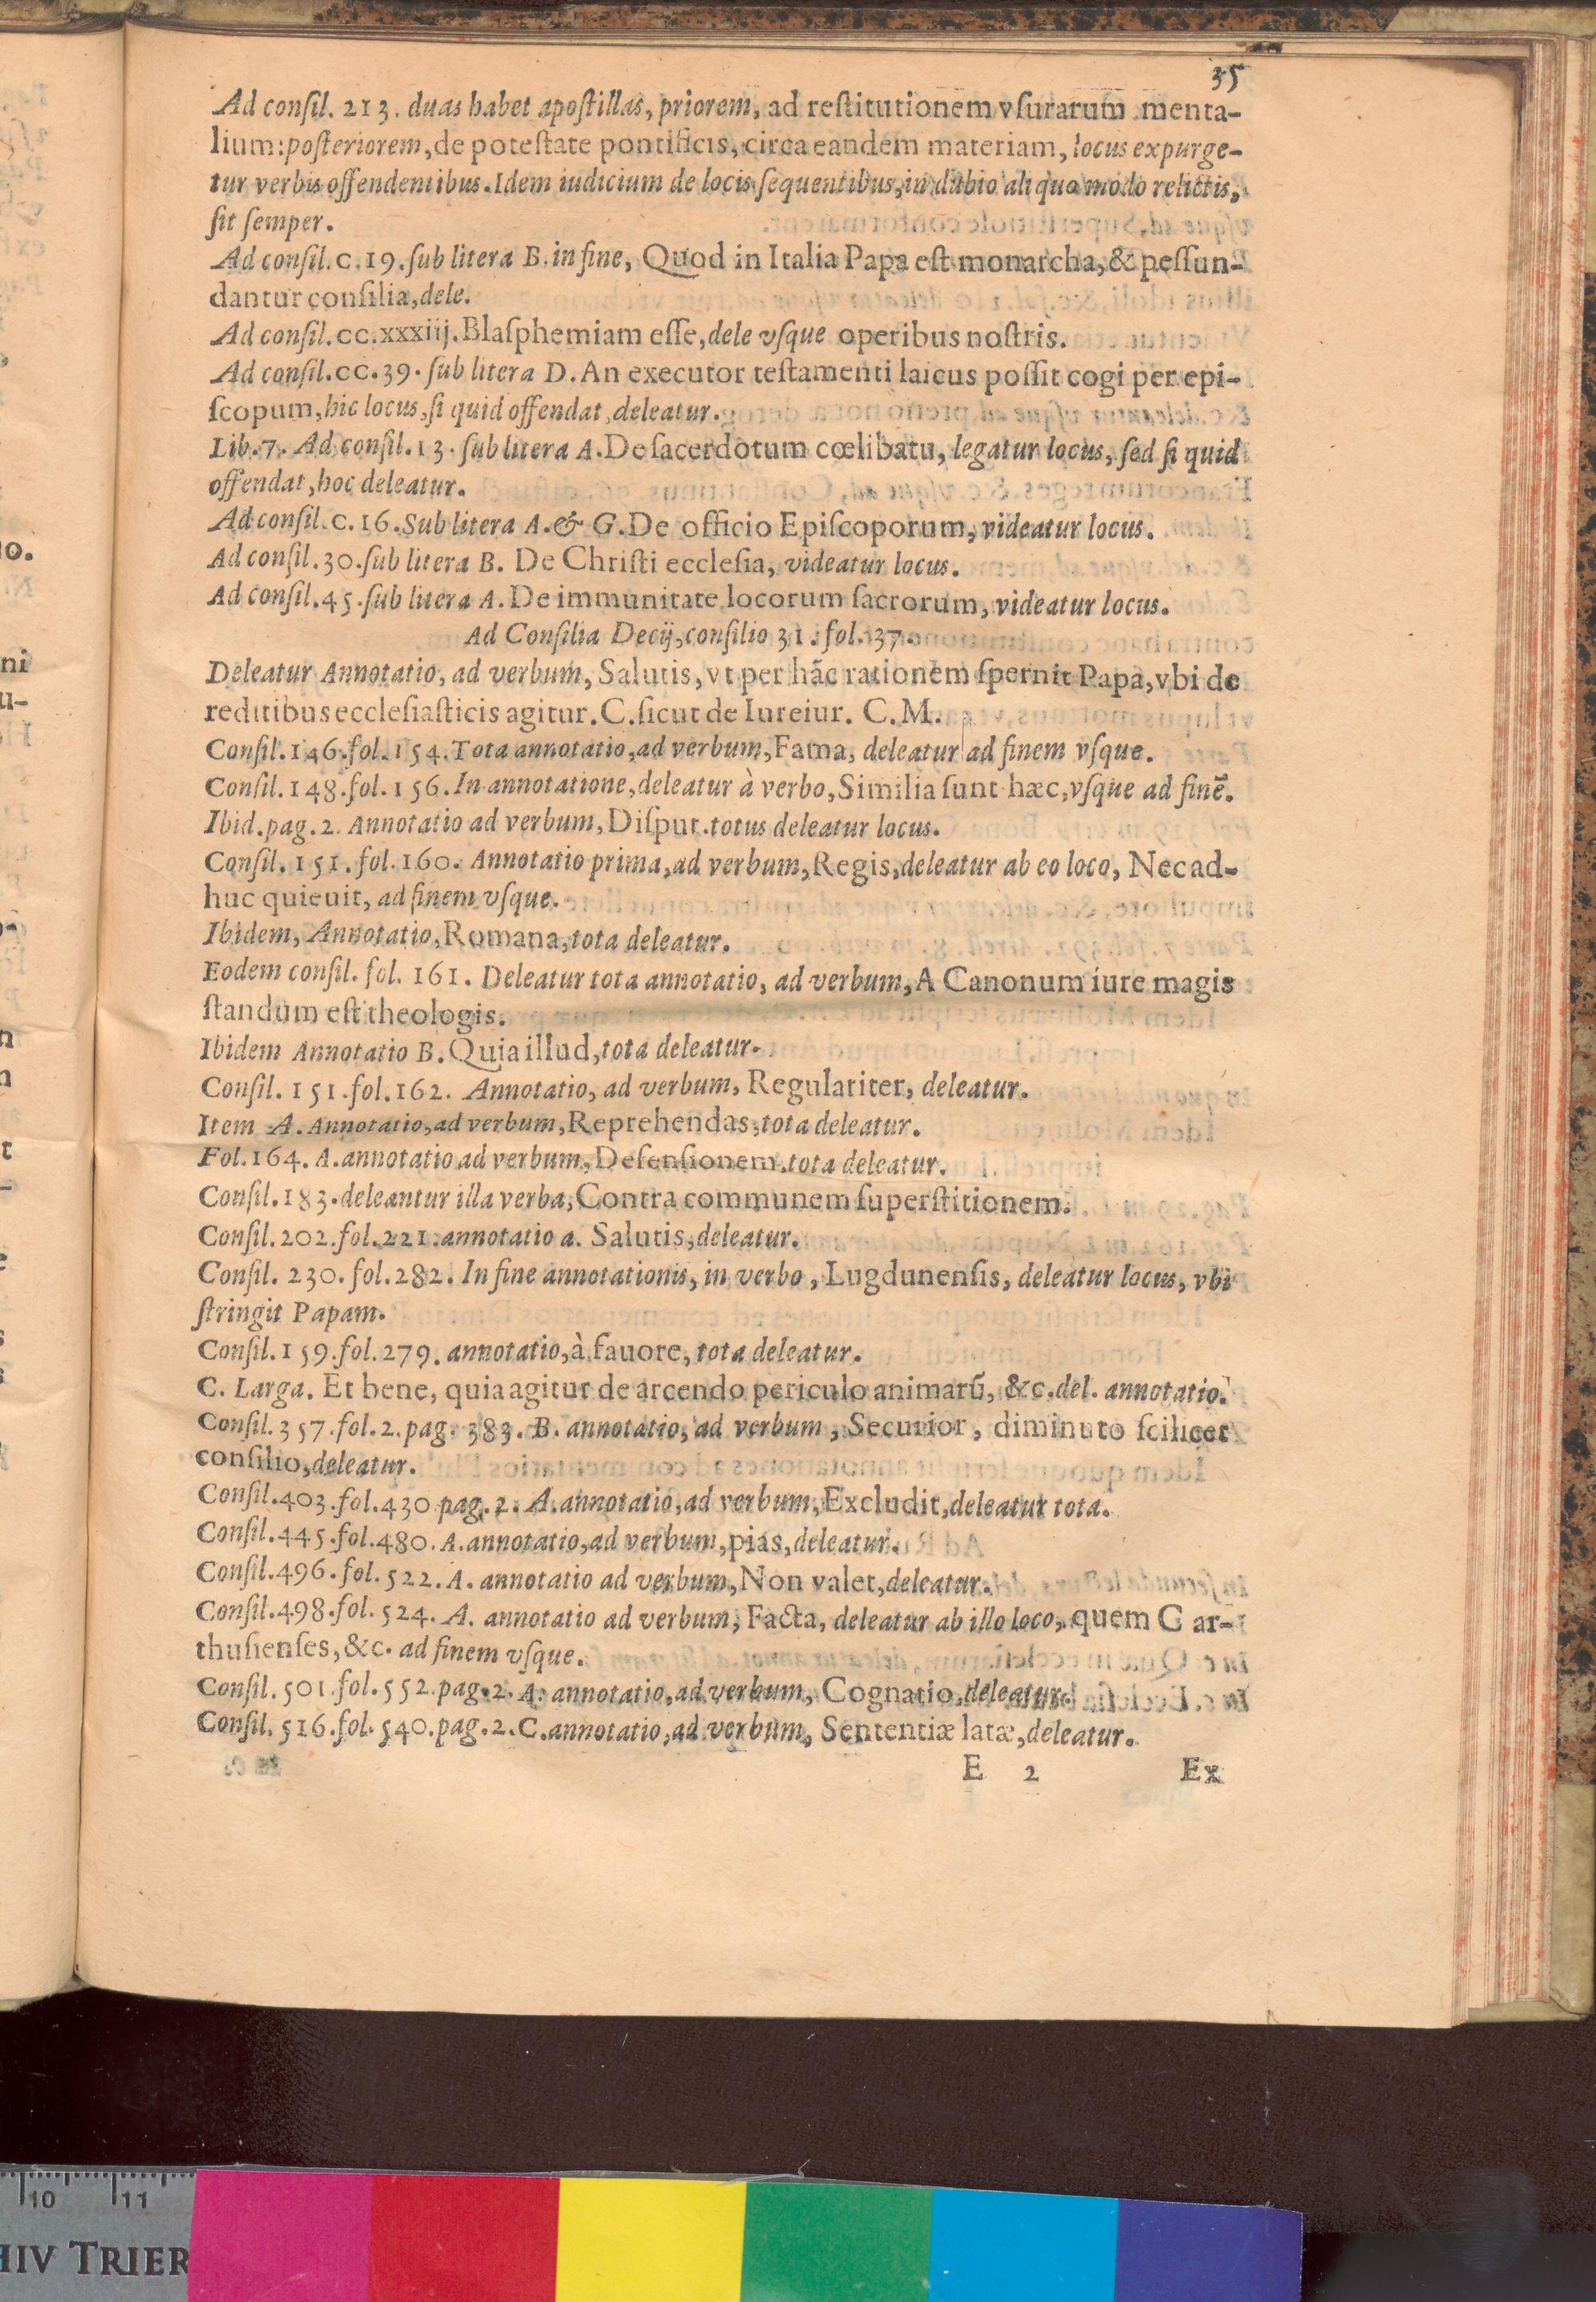 35
Ad consil. 213. duas habet apostillas, priorem, ad restitutionem vsurarum menta-
lium: posteriorem, de potestate pontificis, circa eandem materiam, locus expurge-
tur verbis offendentibus. Idem iudicium de locis sequentibus, in dubio aliquo modo relictis,
sit semper.
Ad consil. c. 19. sub litera B. in fine, Quod in Italia Papa est monarcha, & pessun-
dantur consilia, dele.
Ad consil. cc. xxxiij. Blasphemiam esse, dele vsque operibus nostris.
Ad consil. cc. 39. sub litera D. An executor testamenti laicus possit cogi per epi-
scopum, hic locus, si quid offendat, deleatur.
Lib. 7. Ad consil. 13. sub litera A. De sacerdotum cœlibatu, legatur locus, sed si quid
offendat, hoc deleatur.
Ad consil. c. 16. Sub litera A. & G. De officio Episcoporum, videatur locus.
Ad consil. 30. sub litera B. De Christi ecclesia, videatur locus.
Ad consil. 45. sub litera A. De immunitate locorum sacrorum, videatur locus.
Ad Consilia Decij, consilio 31. fol. 37.
Deleatur Annotatio, ad verbum, Salutis, vt per hãc rationem spernit Papa, vbi de
reditibus ecclesiasticis agitur. C. sicut de Iureiur. C. M.
Consil. 146. fol. 154. Tota annotatio, ad verbum, Fama, deleatur ad finem vsque.
Consil. 148. fol. 156. In annotatione, deleatur à verbo, Similia sunt hæc, vsque ad finẽ.
Ibid. pag. 2. Annotatio ad verbum, Disput. totus deleatur locus.
Consil. 151. fol. 160. Annotatio prima, ad verbum, Regis, deleatur ab eo loco, Nec ad-
huc quieuit, ad finem vsque.
Ibidem, Annotatio, Romana, tota deleatur.
Eodem consil. fol. 161. Deleatur tota annotatio, ad verbum, A Canonum iure magis
standum est theologis.
Ibidem Annotatio B. Quia illud, tota deleatur.
Consil. 151. fol. 162. Annotatio, ad verbum, Regulariter, deleatur.
Item A. Annotatio, ad verbum, Reprehendas, tota deleatur.
Fol. 164. A. annotatio ad verbum, Defensionem. tota deleatur.
Consil. 183. deleantur illa verba, Contra communem superstitionem.
Consil. 202. fol. 221. annotatio a. Salutis, deleatur.
Consil. 230. fol. 282. In fine annotationis, in verbo, Lugdunensis, deleatur locus, vbi
stringit Papam.
Consil. 159. fol. 279. annotatio, à fauore, tota deleatur.
C. Larga. Et bene, quia agitur de arcendo periculo animarũ, &c. del. annotatio.
Consil. 357. fol. 2. pag. 383. B. annotatio, ad verbum, Securior, diminuto scilicet
consilio, deleatur.
Consil. 403. fol. 430. pag. 2. A. annotatio, ad verbum, Excludit, deleatur tota.
Consil. 445. fol. 480. A. annotatio, ad verbum, pias, deleatur.
Consil. 496. fol. 522. A. annotatio ad verbum, Non valet, deleatur.
Consil. 498. fol. 524. A. annotatio ad verbum, Facta, deleatur ab illo loco, quem C ar-
thusienses, &c. ad finem vsque.
Consil. 501. fol. 552. pag. 2. A. annotatio, ad verbum, Cognatio, deleatur.
Consil. 516. fol. 540. pag. 2. C. annotatio, ad verbum, Sententiæ latæ, deleatur.
E 2 Ex
10 11
HIV TRIER